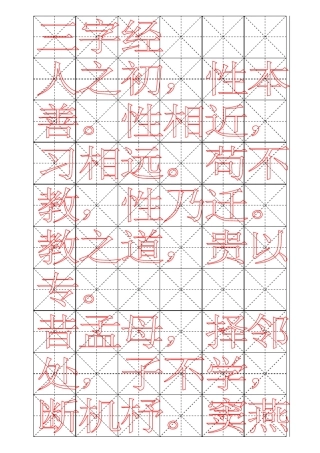 三字经
人之初，性本
善。性相近，
习相远。苟不
教，性乃迁。
教之道，贵以
专。
昔孟母，择邻
处，子不学，
断机杼。窦燕